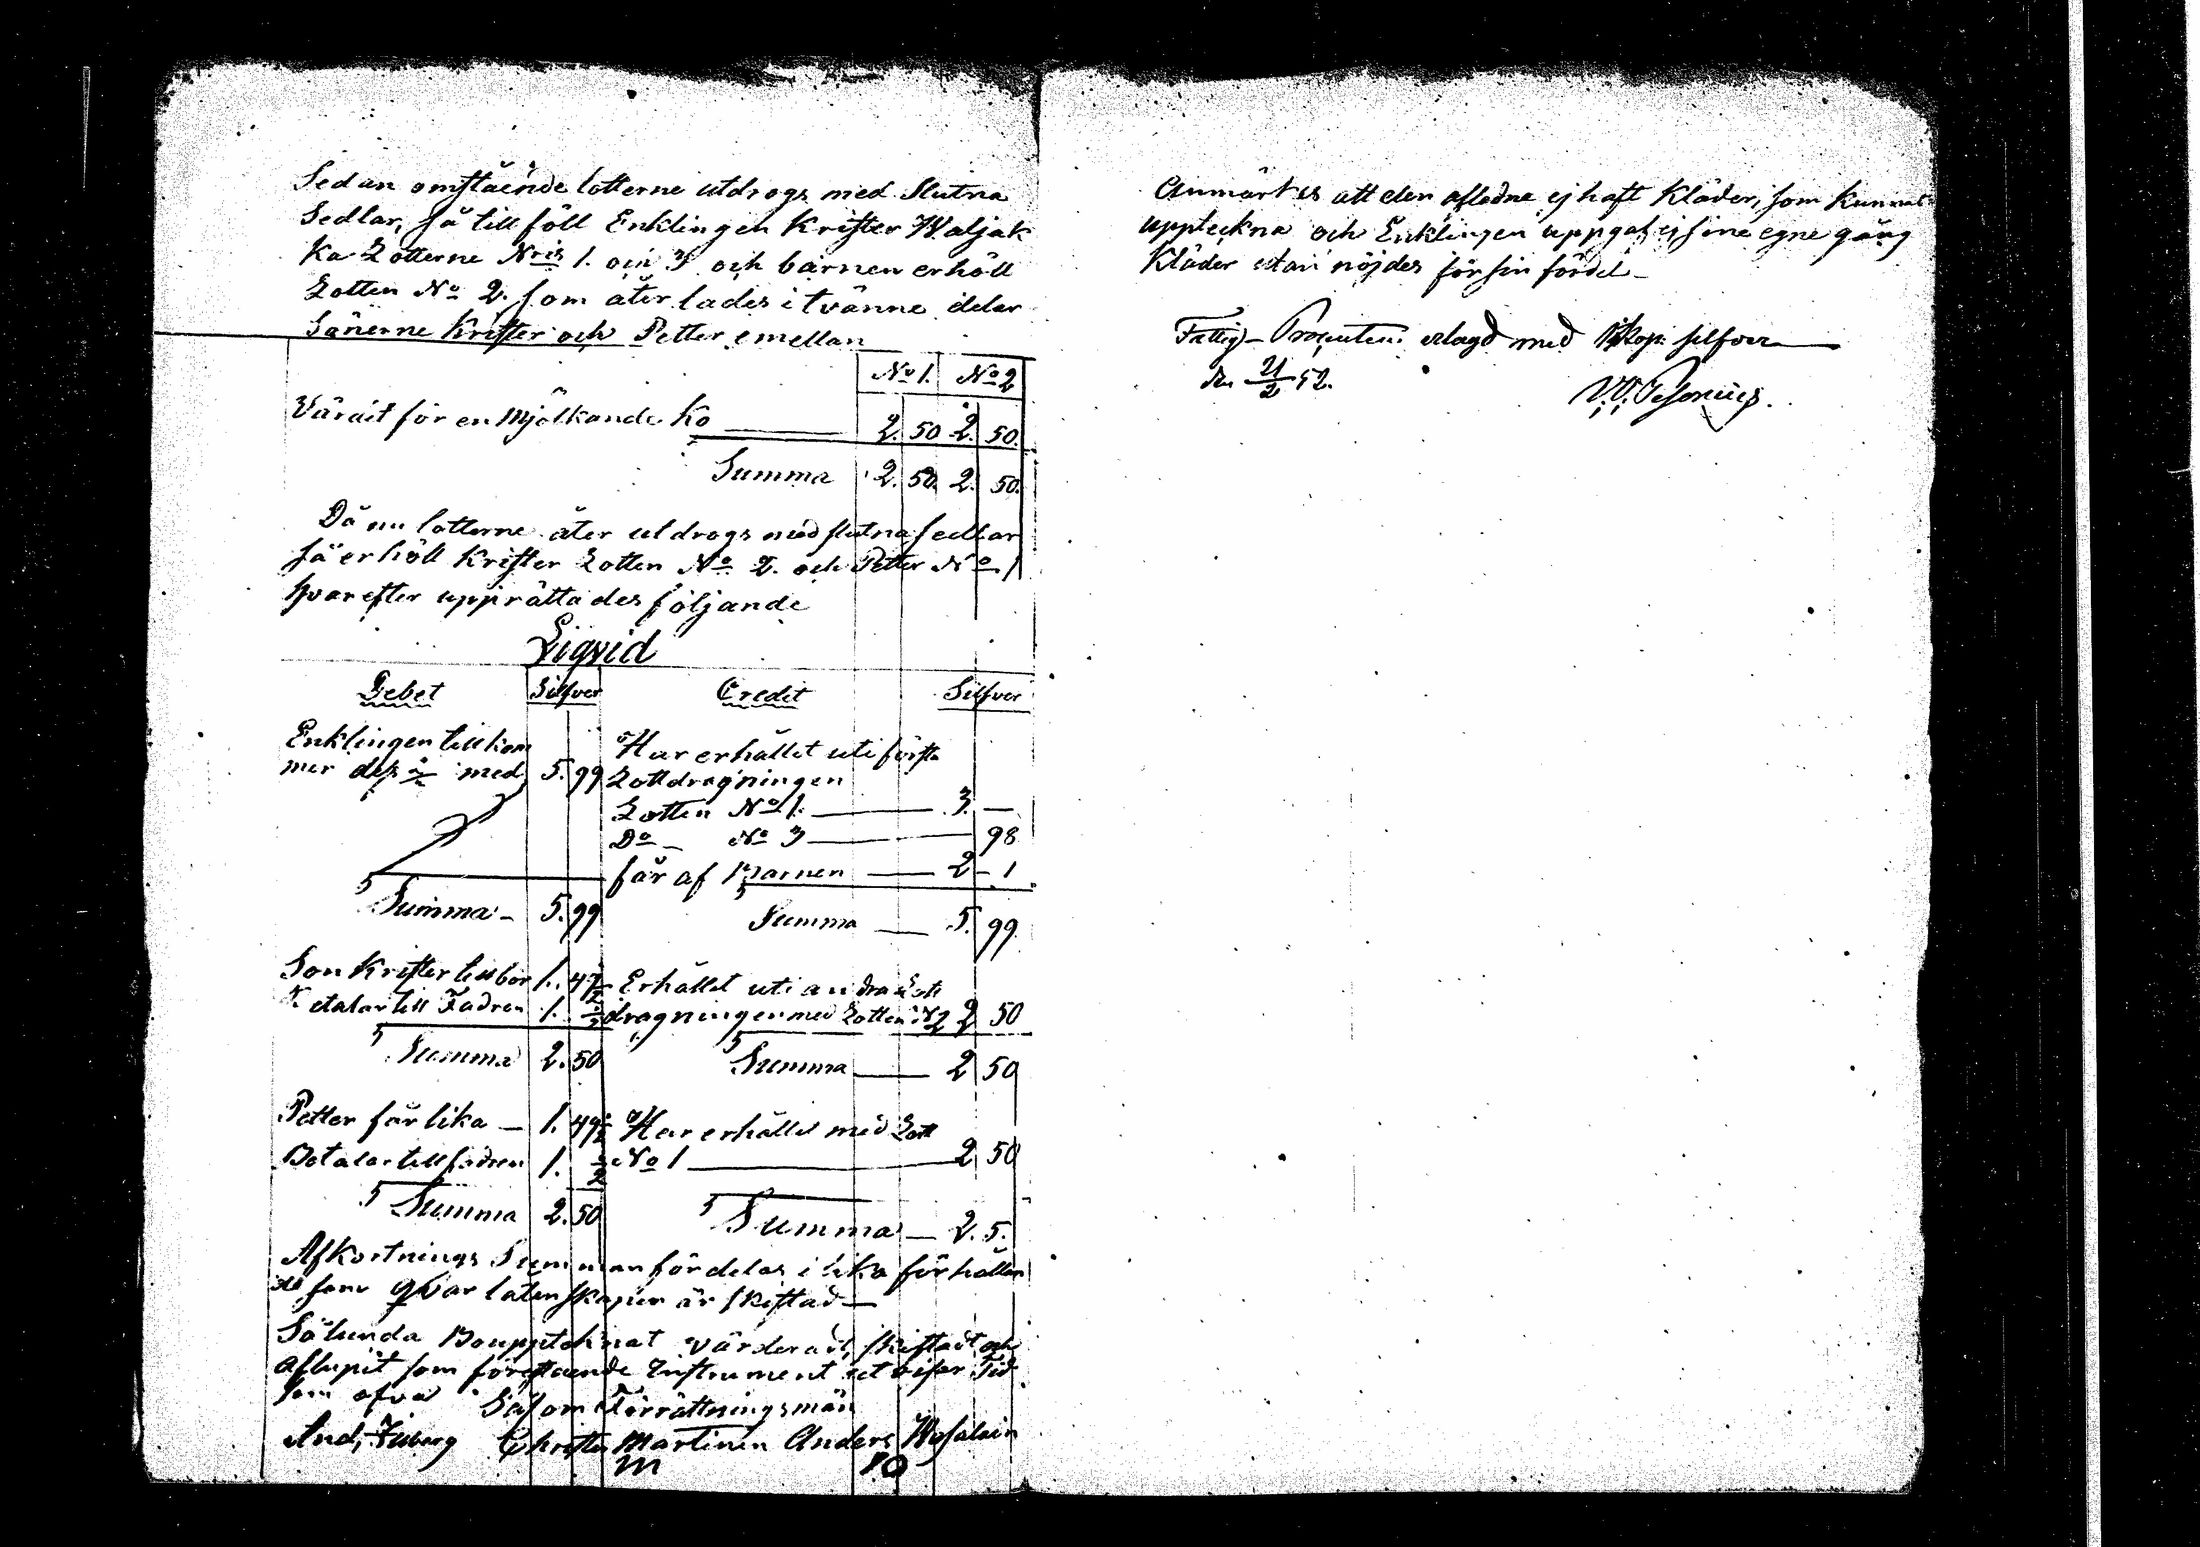 Sedan omstående lotterne utdrogs med slutna
Sedlar, så tillföll Enklingen Krister Waljak
ka Lotterne Nris 1. och 3 och barnen erhöll
Lotten No 2. som åter lades i tvänne delar
Sönerne Krister och Petter emellan
No 1. No 2
Värdit för en Mjölkande Ko 2. 50 2. 50.
Summa 2. 50. 2. 50.
Då nu lotterne åter utdrogs med slutna sedlar
så erhöll Krister Lotten No 2. och Petter No 1
hvarefter upprättades följande
Liqvid
Debet Silfver Credit Silfver
Enklingen tillkom Har erhållet uti första
mer med 5. 99 Lottdragningen
Lotten No 1. 3. —
Do No 3 98
får af Barnen 2 1
Summa 5. 99 Summa 5. 99
Son Krister tillhör 1. Erhållet uti andra Lott
etalar till Fadren 1. 1/2 dragningen med Lotten No 2 2 50
Summa 2. 50 Summa 2 50
Petter får lika 1. 49 1/2 Har erhållet med Lott
Betalar till fadren 1. 1/2 No 1 2 50
Summa 2. 50 Summa 2. 5.
Afkortnings Summan fördelas i lika förhållan
de som qvarlatenskapen är skiftad
Sålunda Bouppteknat värderadt, skiftadt och
aflupit som förestående Instrument utvisar Tid
som ofvan Såsom Förrättningsmän
And, Christer Martinen Anders
m
Anmärkes att den aflidne ej haft Kläder, som kunnat
uppteckna och Enklingen uppgaf ej sine egne gång
Kläder utan nöjdes för sin fördel
Fattig-Procenten erlagd med kop: silfver
den 21/2 52.